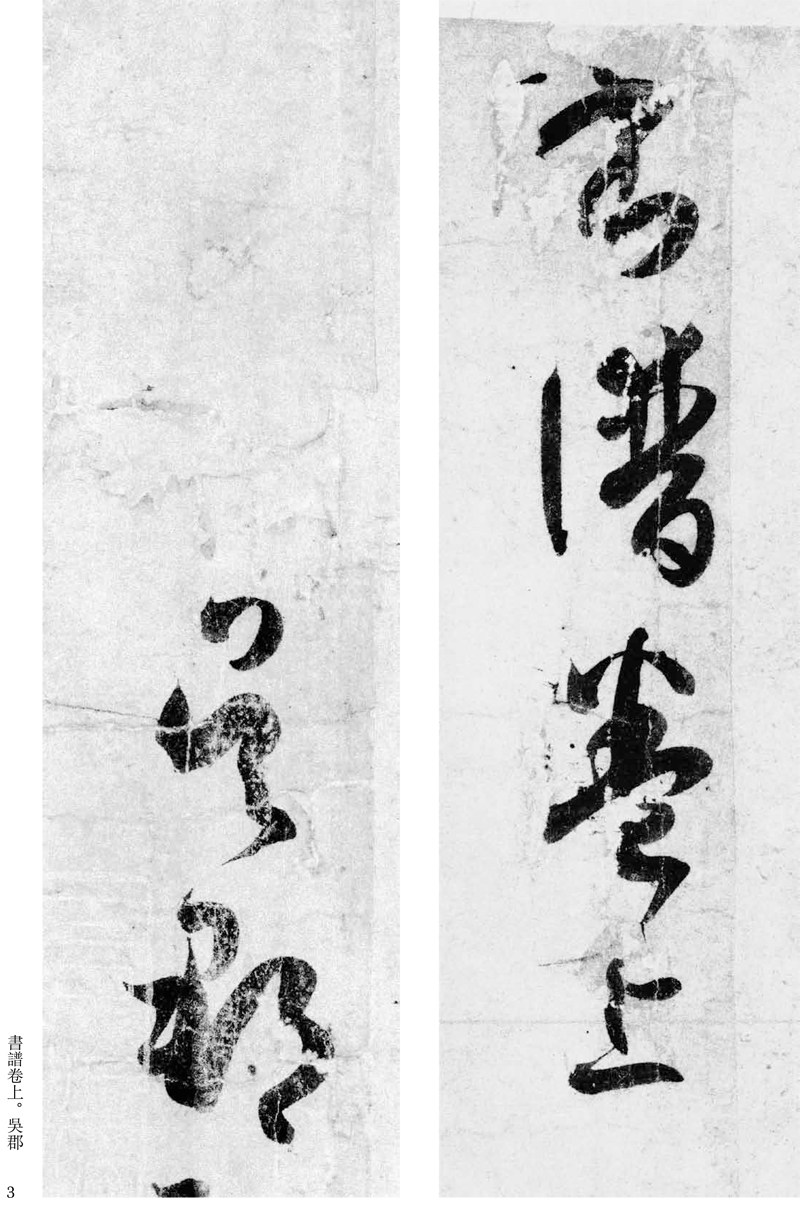 書譜卷上
吳郡
書譜卷上。吳郡
3